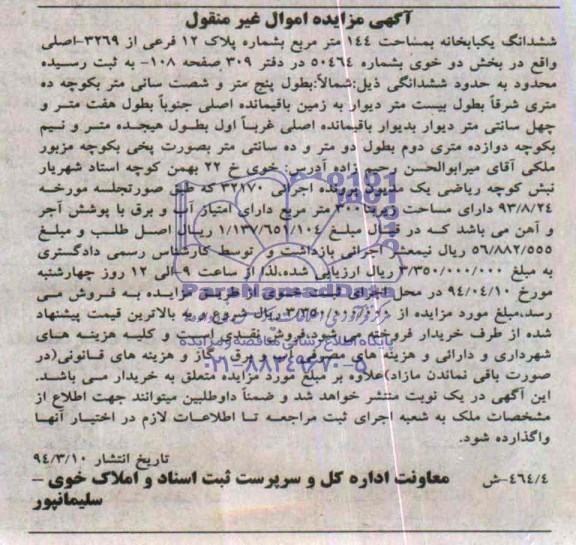 آگهی مزایده اموال غیر منقول
ششدانگ یکبابخانه بمساحت ۱۴۴ متر مربع بشماره پلاک ۱۲ فرعی از ۳۲۶۹-اصلی
واقع در بخش دو خوی بشماره ۵۰۴۶۴ در دفتر ۳۰۹ صفحه ۱۰۸- به ثبت رسیده
محدود به حدود ششدانگی ذیل:شمالاً:بطول پنج متر و شصت سانتی متر بکوچه ده
متری شرقاً بطول بیست متر دیوار به زمین باقیمانده اصلی جنوباً بطول هفت متر و
چهل سانتی متر دیوار بدیوار باقیمانده اصلی غرباً اول بطول هیجده متر و نیم
بکوچه دوازده متری دوم بطول دو متر و ده سانتی متر بصورت پخی بکوچه مزبور
ملکی آقای میرابوالحسن رحیم زاده آدرس: خوی خ ۲۲ بهمن کوچه استاد شهریار
نبش کوچه ریاضی یک مدیون پرونده اجرائی ۳۲۱۷۰ که طبق صورتجلسه مورخه
۹۳/۸/۲۴ دارای مساحت زیربنا ۳۰۰ متر مربع دارای امتیاز آب و برق با پوشش آجر
و آهن می باشد که در قبال مبلغ ۱/۱۳۷/۶۵۱/۱۰۴ ریال اصل طلب و مبلغ
۵۶/۸۸۲/۵۵۵ ریال نیمعشر اجرائی بازداشت و توسط کارشناس رسمی دادگستری
به مبلغ ۳/۳۵۰/۰۰۰/۰۰۰ ریال ارزیابی شده،لذا از ساعت ۹-الی ۱۲ روز چهارشنبه
مورخ ۹۴/۰۴/۱۰ در محل اجرای ثبت خوی از طریق مزایده به فروش می
رسد.مبلغ مورد مزایده از ۳/۳۵۰/۰۰۰/۰۰۰ ریال شروع و به بالاترین قیمت پیشنهاد
شده از طرف خریدار فروخته می شود،فروش نقدی است و کلیه هزینه های
شهرداری و دارائی و هزینه های مصرفی آب و برق و گاز و هزینه های قانونی(در
صورت باقی نماندن مازاد)علاوه بر مبلغ مورد مزایده متعلق به خریدار می باشد.
این آگهی در یک نوبت منتشر خواهد شد و ضمناً داوطلبین میتوانند جهت اطلاع از
مشخصات ملک به شعبه اجرای ثبت مراجعه تا اطلاعات لازم در اختیار آنها
واگذارده شود.
تاریخ انتشار ۹۴/۳/۱۰
۴۶۴/۴-ش معاونت اداره کل و سرپرست ثبت اسناد و املاک خوی –
سلیمانپور
ParsNamadData
پایگاه اطلاع رسانی مناقصه و مزایده
۰۲۱-۸۸۳۴۹۶۷۰-۵